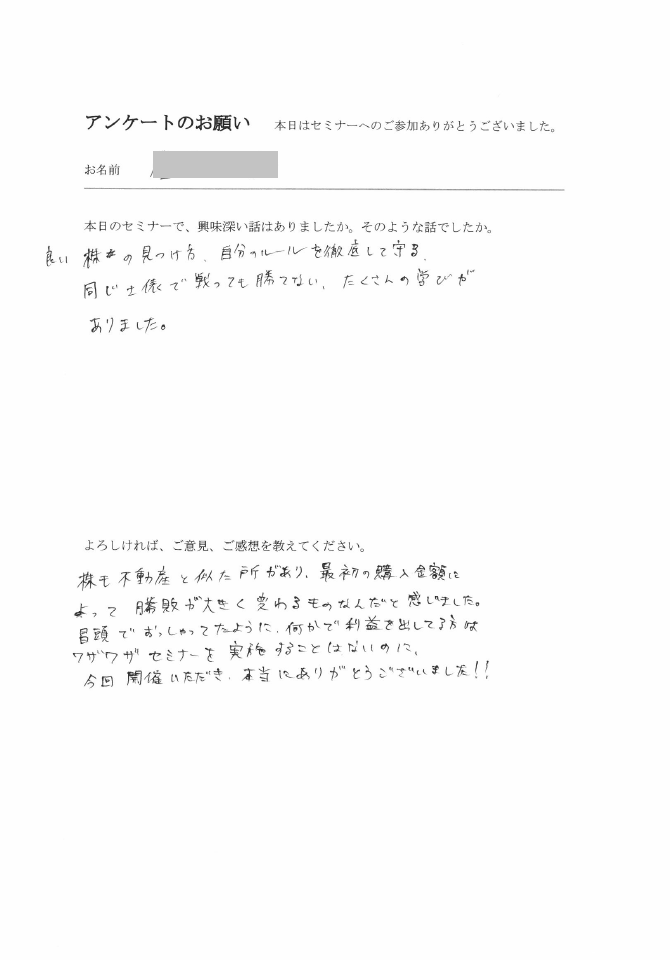 アンケートのお願い 本日はセミナーへのご参加ありがとうございました。
お名前
本日のセミナーで、興味深い話はありましたか。そのような話でしたか。
良い 株*の見つけ方、自分のルールを徹底して守る、
同じ土俵で戦っても勝てない、たくさんの学びが
ありました。
よろしければ、ご意見、ご感想を教えてください。
株も不動産と似た所があり、最初の購入金額に
よって勝敗が大きく変わるものなんだと感じました。
冒頭でおっしゃってたように、何かで利益を出してる方は
ワザワザセミナーを実施することはないのに、
今回開催いただき、本当にありがとうございました!!